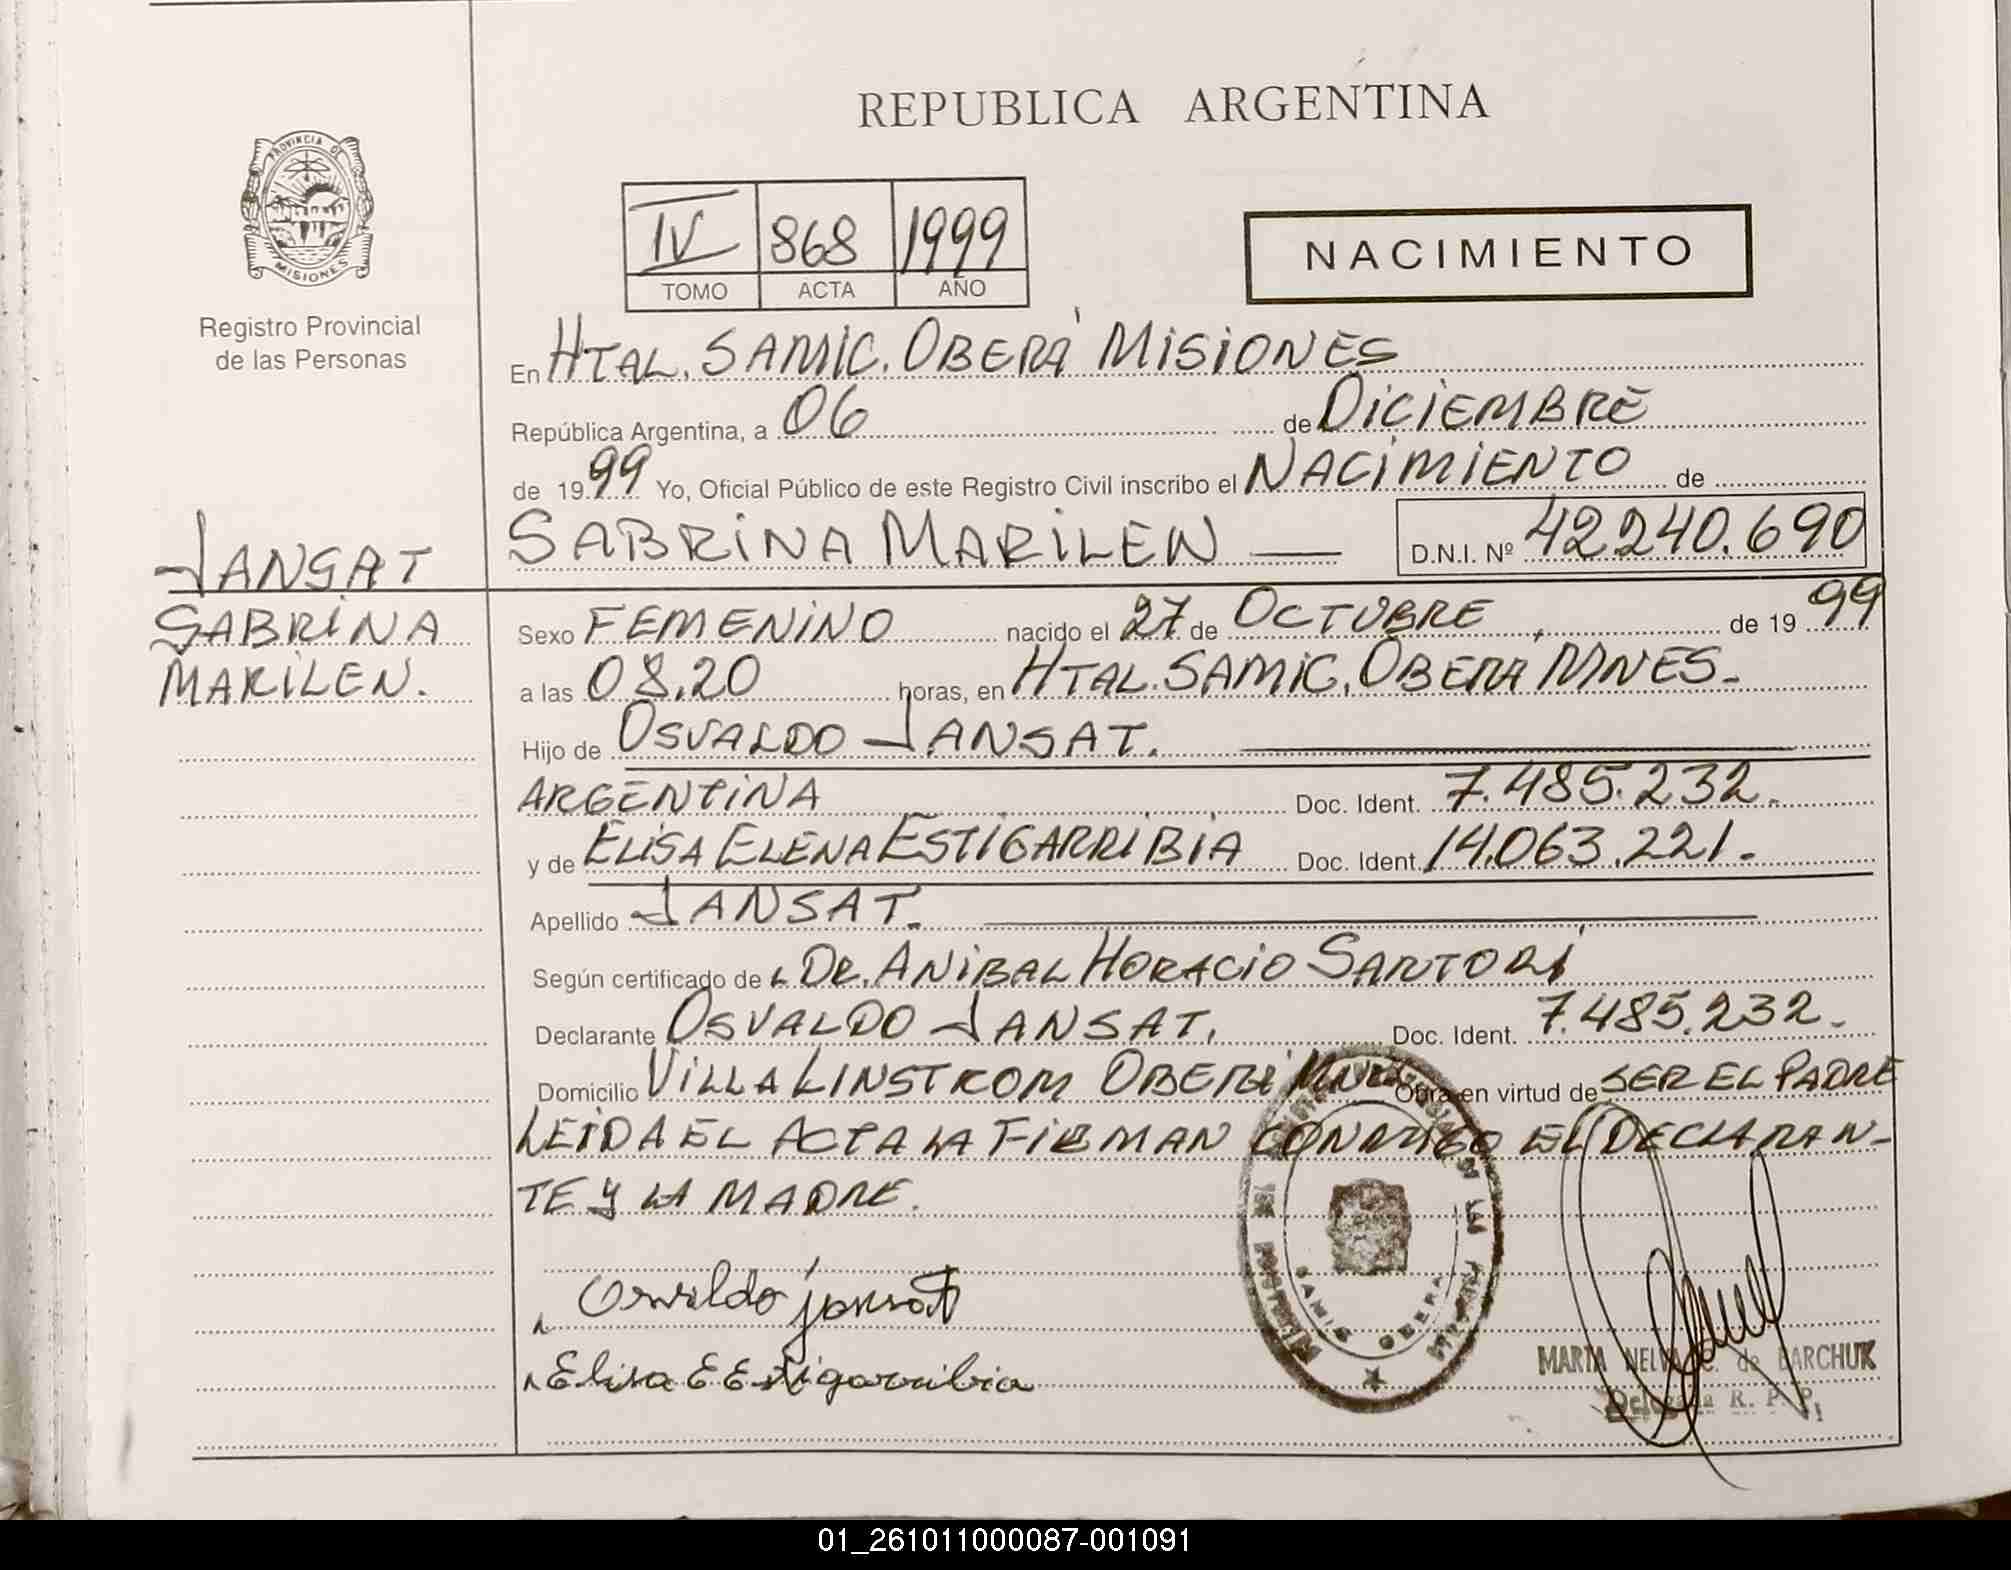 REPUBLICA ARGENTINA
PROVINCIA DE
MISIONES
Registro Provincial
de las Personas
IV 868 1999
TOMO ACTA AÑO
NACIMIENTO
En HTAL. SAMIC. OBERÁ MISIONES
República Argentina, a 06 de DICIEMBRE
de 1999 Yo, Oficial Público de este Registro Civil inscribo el NACIMIENTO de
JANSAT
SABRINA
MARILEN.
SABRINA MARILEN D.N.I. Nº 42240.690
Sexo FEMENINO nacido el 27 de OCTUBRE, de 1999
a las 08.20 horas, en HTAL. SAMIC. OBERÁ MNES.
Hijo de OSVALDO JANSAT.
ARGENTINA Doc. Ident. 7.485.232.
y de ELISA ELENA ESTIGARRIBIA Doc. Ident. 14.063.221.
Apellido JANSAT.
Según certificado de DR. ANIBAL HORACIO SARTORI
Declarante OSVALDO JANSAT. Doc. Ident. 7.485.232.
Domicilio VILLA LINSTROM OBERÁ MNES Obra en virtud de SER EL PADRE
LEIDA EL ACTA LA FIRMAN CONMIGO EL DECLARAN-
TE Y LA MADRE.
Osvaldo jansat
Elisa E Estigarribia
SAMIC OBERA
MARTA NELVA de BARCHUK
Delegada R. P. P.
01_261011000087-001091